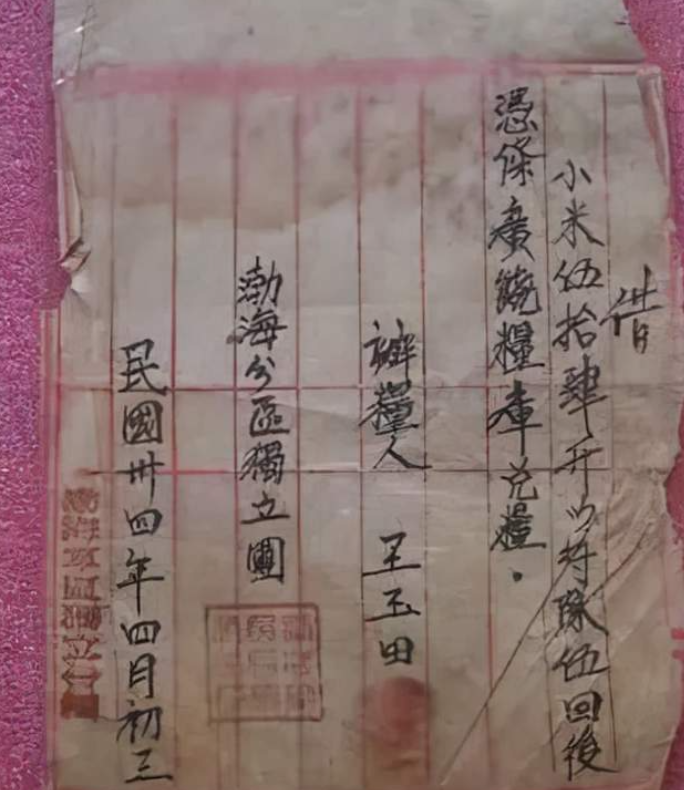 借
小米伍拾肆斤以待隊伍回後
憑條廣饒糧庫兌糧.
辦糧人 王玉田
渤海分區獨立團
民國卅四年四月初三
渤海軍區獨立